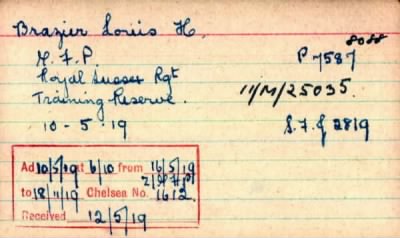 Brazier Louis H.
8088
M.F.P.
P 7587
Royal Sussex Rgt
11/M/25035.
Training Reserve.
10-5-19
S.F.J 2819
Ad 10/5/19 at 6/10 from 16/5/19
to 18/11/19 Chelsea No. 1612.
Received 12/5/19